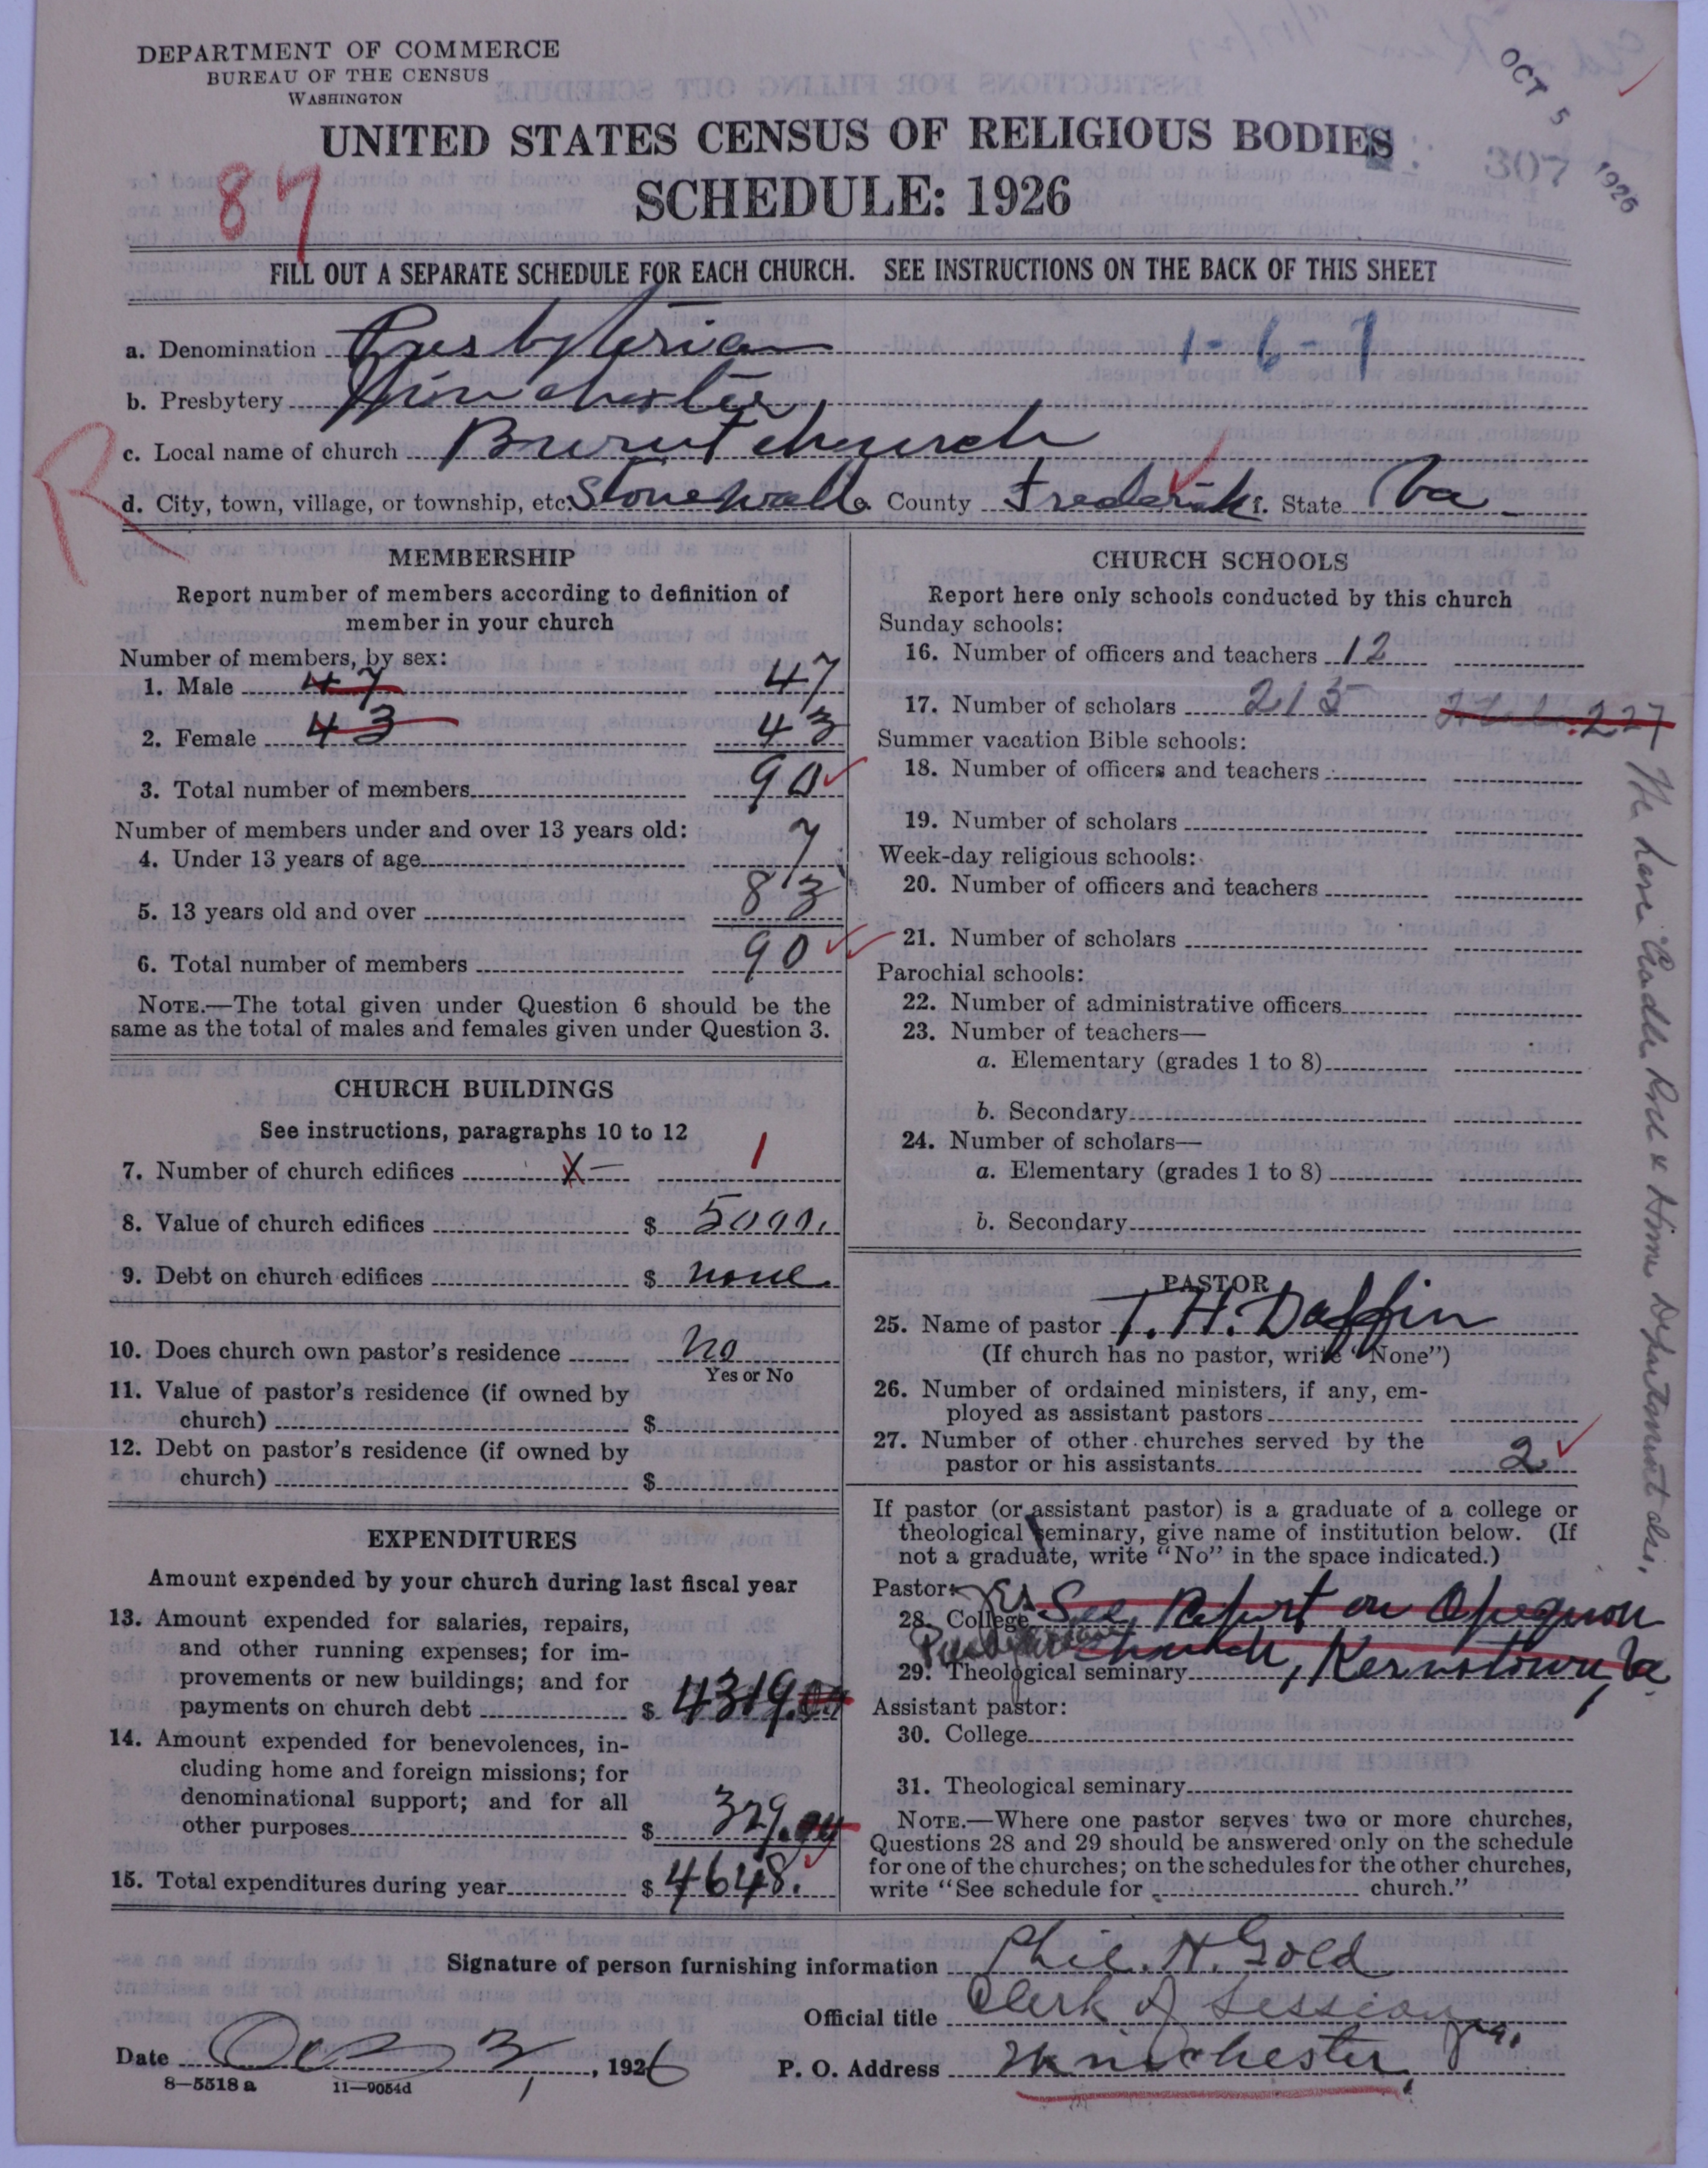 DEPARTMENT OF COMMERCE
BUREAU OF THE CENSUS
WASHINGTON
OCT 5 1926
UNITED STATES CENSUS OF RELIGIOUS BODIES
307
87
SCHEDULE: 1926
FILL OUT A SEPARATE SCHEDULE FOR EACH CHURCH. SEE INSTRUCTIONS ON THE BACK OF THIS SHEET
a. Denomination Presbyterian 1-6-7
b. Presbytery Winchester
c. Local name of church Burnt church
R
d. City, town, village, or township, etc. Stonewall e. County Frederick f. State Va
MEMBERSHIP
Report number of members according to definition of
member in your church
Number of members, by sex:
1. Male 47 47
2. Female 43 43
3. Total number of members 90
Number of members under and over 13 years old:
4. Under 13 years of age 7
5. 13 years old and over 83
6. Total number of members 90
NOTE.—The total given under Question 6 should be the
same as the total of males and females given under Question 3.
CHURCH BUILDINGS
See instructions, paragraphs 10 to 12
7. Number of church edifices X— 1
8. Value of church edifices $ 5000.
9. Debt on church edifices $ none
10. Does church own pastor's residence no
Yes or No
11. Value of pastor's residence (if owned by
church) $
12. Debt on pastor's residence (if owned by
church) $
EXPENDITURES
Amount expended by your church during last fiscal year
13. Amount expended for salaries, repairs,
and other running expenses; for im-
provements or new buildings; and for
payments on church debt $ 4319.
14. Amount expended for benevolences, in-
cluding home and foreign missions; for
denominational support; and for all
other purposes $ 329.
15. Total expenditures during year $ 4648.
CHURCH SCHOOLS
Report here only schools conducted by this church
Sunday schools:
16. Number of officers and teachers 12
17. Number of scholars 215 227
Summer vacation Bible schools:
18. Number of officers and teachers
19. Number of scholars
Week-day religious schools:
20. Number of officers and teachers
21. Number of scholars
Parochial schools:
22. Number of administrative officers
23. Number of teachers—
a. Elementary (grades 1 to 8)
b. Secondary
24. Number of scholars—
a. Elementary (grades 1 to 8)
b. Secondary
We have Cradle Roll & Home Department also.
PASTOR
25. Name of pastor T. H. Daffin
(If church has no pastor, write "None")
26. Number of ordained ministers, if any, em-
ployed as assistant pastors
27. Number of other churches served by the
pastor or his assistants 2
If pastor (or assistant pastor) is a graduate of a college or
theological seminary, give name of institution below. (If
not a graduate, write "No" in the space indicated.)
Pastor: Yes
28. College See Report on Opequon
Presbyterian Church, Kernstown, Va.
29. Theological seminary
Assistant pastor:
30. College
31. Theological seminary
NOTE.—Where one pastor serves two or more churches,
Questions 28 and 29 should be answered only on the schedule
for one of the churches; on the schedules for the other churches,
write "See schedule for church."
Signature of person furnishing information Phil. H. Gold
Official title Clerk of Session
Date Oct 3, 1926 P. O. Address Winchester, Va.
8—5518 a 11—9054d